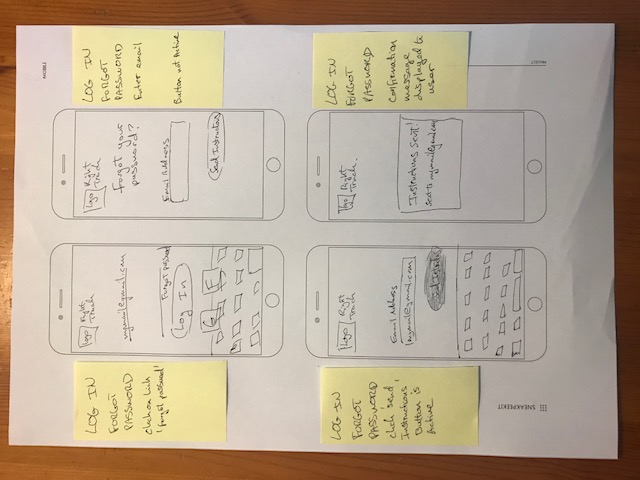 MOBILE
LOG IN
FORGOT
PASSWORD
click on link
'forgot password'
logo Right
Track
mymail@gmail.com
Forgot password
Log In
G F
logo Right
Track
Forgot your
password?
Email Address
Send Instructions
LOG IN
FORGOT
PASSWORD
Enter email
Button not Active
LOG IN
FORGOT
PASSWORD
click 'send
Instructions'
Button is
Active
logo Right
Track
Email Address
mymail@gmail.com
Send Instructions
logo Right
Track.
Instructions Sent!
Sent to mymail@gmail.com
LOG IN
FORGOT
PASSWORD
Confirmation
message
displayed to
user
SNEAKPEEKIT
PROJECT